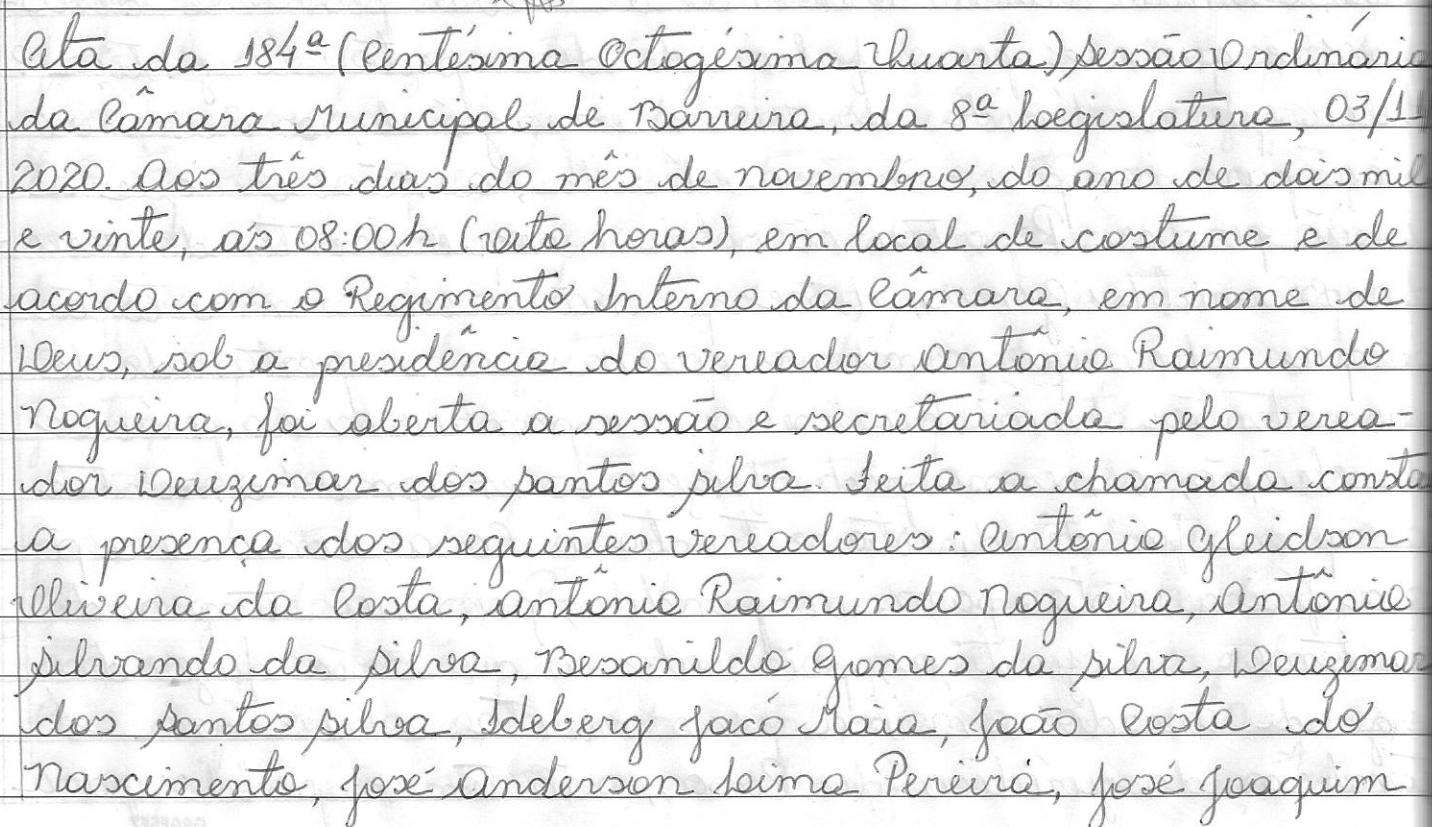 Ata da 184ª (Centésima Octogésima Quarta) Sessão Ordinária
da Câmara Municipal de Barreira, da 8ª Legislatura, 03/11
2020. Aos três dias do mês de novembro, do ano de dois mil
e vinte, às 08:00h (oito horas), em local de costume e de
acordo com o Regimento Interno da Câmara, em nome de
Deus, sob a presidência do vereador Antônio Raimundo
Nogueira, foi aberta a sessão e secretariada pelo verea-
dor Deuzimar dos Santos Silva. Feita a chamada consta
a presença dos seguintes vereadores: Antônio Gleidson
Oliveira da Costa, Antônio Raimundo Nogueira, Antônio
Silvando da Silva, Besanildo Gomes da Silva, Deuzimar
dos Santos Silva, Ideberg Jacó Maia, João Costa do
Nascimento, José Anderson Lima Pereira, José Joaquim